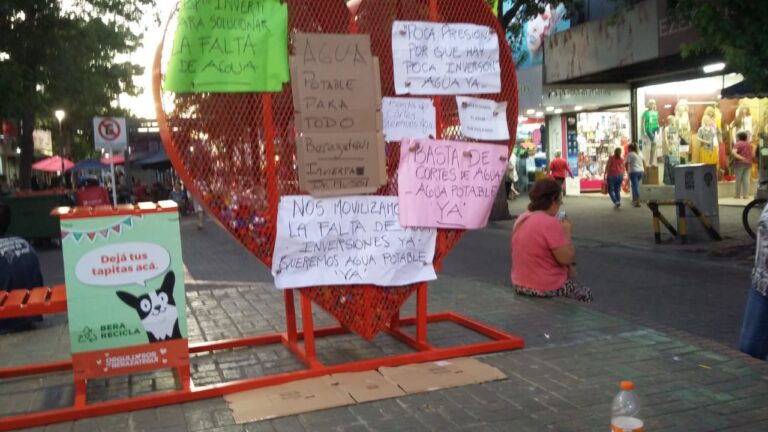 INVERTÍ
PARA SOLUCIONAR
LA FALTA
DE AGUA
AGUA
POTABLE
PARA
TODO
BERAZATEGUI
INVERTÍ
"POCA PRESIÓN"
POR QUE HAY
POCA INVERSIÓN
AGUA YA
BASTA
DE CORTES
DE AGUA
BASTA DE
CORTES DE AGUA
AGUA POTABLE
YA
NOS MOVILIZAMOS
LA FALTA DE AGUA
INVERSIONES YA
QUEREMOS AGUA POTABLE
"YA"
Dejá tus
tapitas acá.
BERA
RECICLA
ORGULLO SER
BERAZATEGUI
E